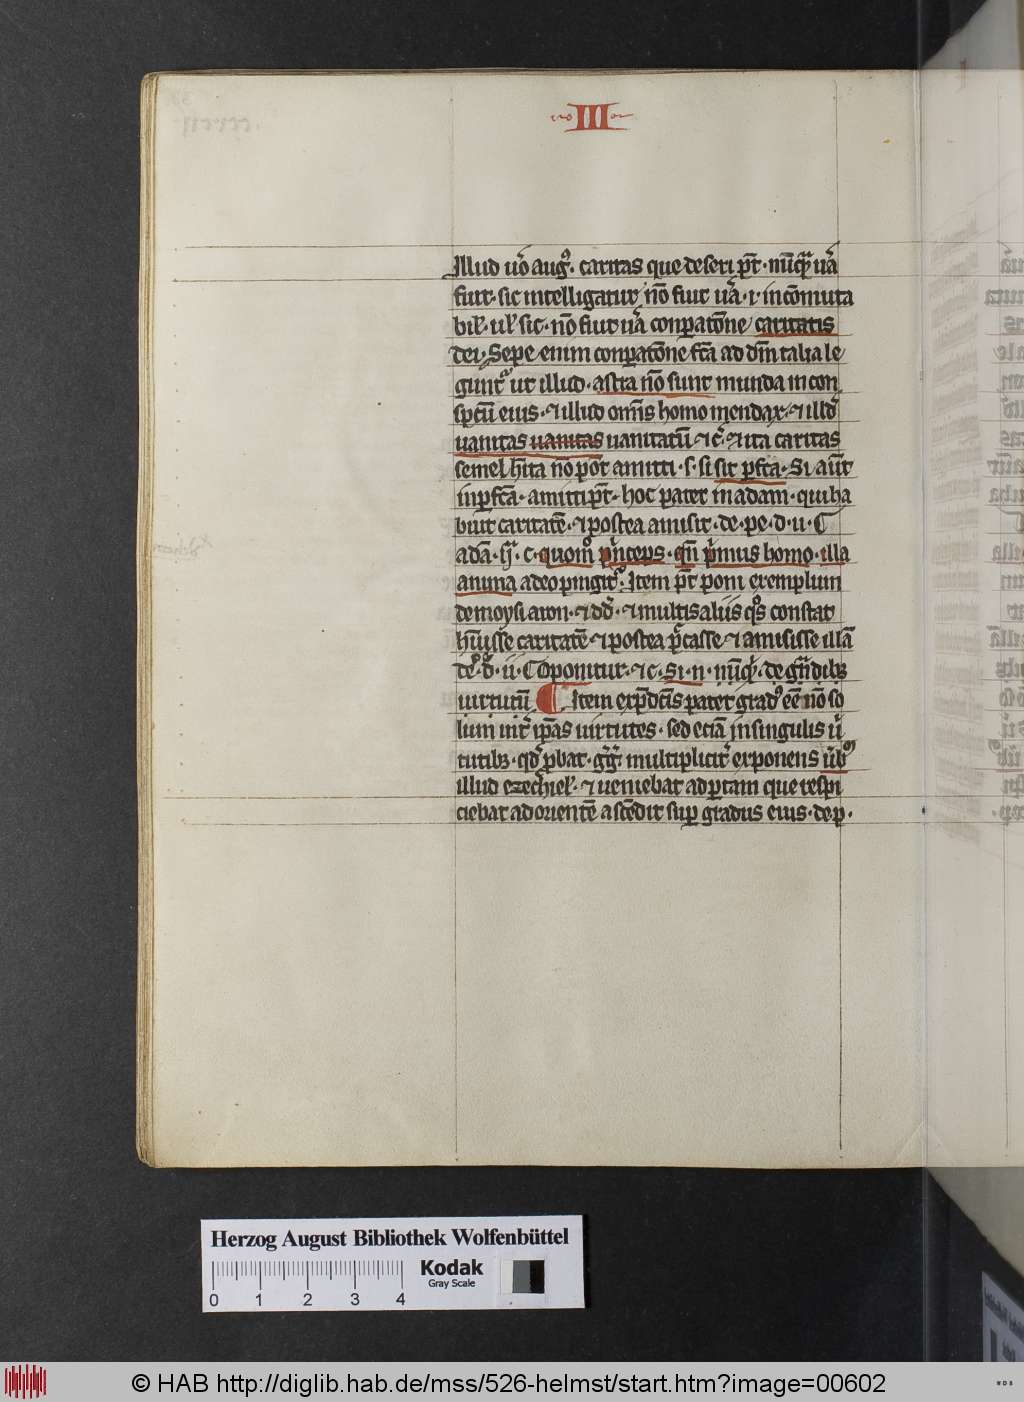 III
Illud u͛o aug᷒. caritas que deseri p̄t. nūq̄ͣ uͣa
fuit. sic intelligatur nō fiut uͣa .i. incōmuta
bil'. ul' sic. nō fiut uͣa conparatōne caritatis
dei. Sepe enim conparatōne fc̄a ad dm̄ talia le
guntᷣ ut illud. astra nō sunt munda in con
spectū eius. ⁊ illud omīs homo mendax. ⁊ illd̛
uanitas uanitas uanitatū ⁊ c̄. ⁊ ita caritas
semel hīta nō pōt amitti .s. si sit ꝑfc̄a. Si aūt
inꝑfc̄ā. amitti p̄t. hoc patet in adam. qui ha
buit caritatē. ⁊ postea amisit. de. pe. d. ii. C
adā. ij̄. c. quom̊ princeps. qn̄ primus homo. illa
anima adeo pingitᷣ. Item p̄t poni exemplum
de moysi aron. ⁊ dd̄. ⁊ multis aliis q̊s constat
habuisse caritatē. ⁊ postea peccasse. ⁊ amisisse illā
de. d. ii. C Oponitur. ⁊ c. Si. n. nūq̄ͣ. de gn̄dibꝫ
uirtutū. Item ex p̄dc̄is patet grad᷒ eē nō so
lum int͛ ip̄as uirtutes. sed eciā in singulis uͥ
tutibꝫ. qd̛ ꝓbat. gͥg᷒. multiplicit͛ exponens ūb᷒
illud ezechiel'. ⁊ ueniebat ad portam que respi
ciebat ad orientē ascēdit suꝑ gradus eius. de. p.
Herzog August Bibliothek Wolfenbüttel
Kodak
Gray Scale
0 1 2 3 4
© HAB http://diglib.hab.de/mss/526-helmst/start.htm?image=00602